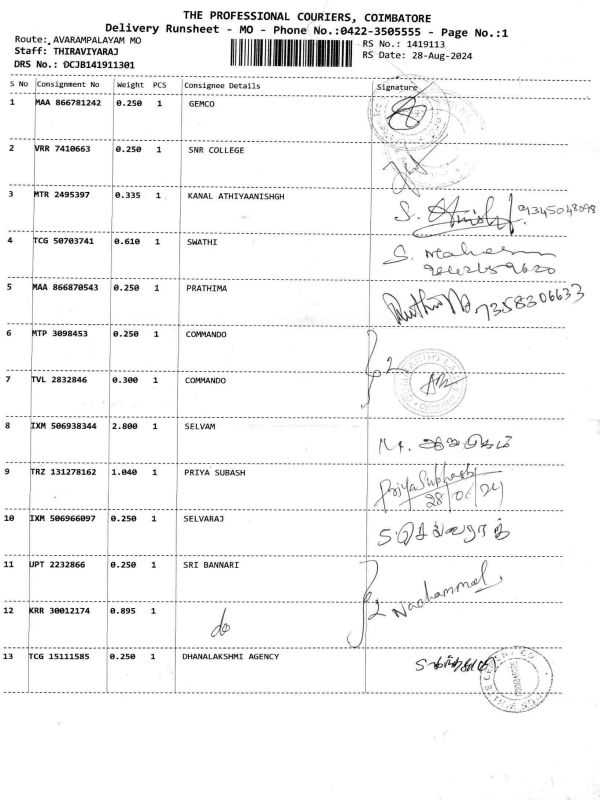 THE PROFESSIONAL COURIERS, COIMBATORE
Delivery Runsheet - MO - Phone No.:0422-3505555 - Page No.:1
Route: AVARAMPALAYAM MO
Staff: THIRAVIYARAJ
DRS No.: DCJB141911301
RS No.: 1419113
RS Date: 28-Aug-2024
S No Consignment No Weight PCS Consignee Details Signature
1 MAA 866781242 0.250 1 GEMCO
2 VRR 7410663 0.250 1 SNR COLLEGE
3 MTR 2495397 0.335 1 KANAL ATHIYAANISHGH 9345048098
4 TCG 50703741 0.610 1 SWATHI
5 MAA 866870543 0.250 1 PRATHIMA 7358306633
6 MTP 3098453 0.250 1 COMMANDO
2
7 TVL 2832846 0.300 1 COMMANDO
8 IXM 506938344 2.800 1 SELVAM
9 TRZ 131278162 1.040 1 PRIYA SUBASH
10 IXM 506966097 0.250 1 SELVARAJ
11 UPT 2232866 0.250 1 SRI BANNARI
2 Naahammal
12 KRR 30012174 0.895 1 do
13 TCG 15111585 0.250 1 DHANALAKSHMI AGENCY